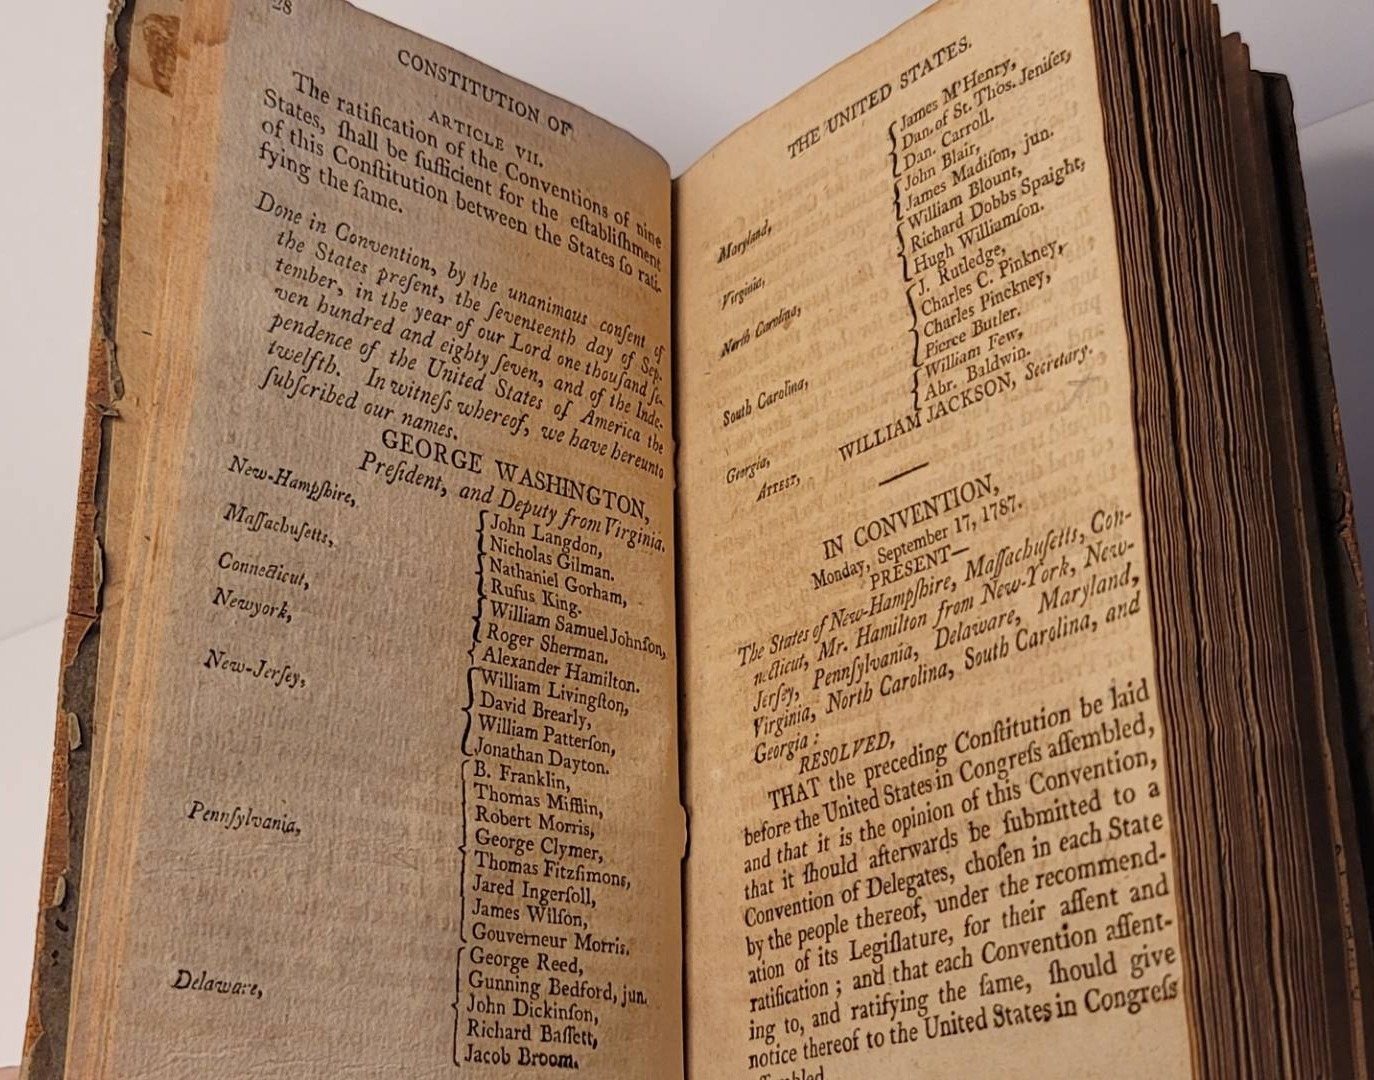 28
CONSTITUTION OF
ARTICLE VII.
The ratification of the Conventions of nine
States, ſhall be ſufficient for the eſtabliſhment
of this Conſtitution between the States ſo rati-
fying the ſame.
Done in Convention, by the unanimous conſent of
the States preſent, the ſeventeenth day of Sep-
tember, in the year of our Lord one thouſand ſe-
ven hundred and eighty ſeven, and of the Inde-
pendence of the United States of America the
twelfth. In witneſs whereof, we have hereunto
ſubſcribed our names.
GEORGE WASHINGTON,
Preſident, and Deputy from Virginia.
New-Hampſhire,
John Langdon,
Nicholas Gilman.
Maſſachuſetts,
Nathaniel Gorham,
Rufus King.
Connecticut,
William Samuel Johnſon,
Roger Sherman.
Newyork,
Alexander Hamilton.
New-Jerſey,
William Livingſton,
David Brearly,
William Patterſon,
Jonathan Dayton.
Pennſylvania,
B. Franklin,
Thomas Mifflin,
Robert Morris,
George Clymer,
Thomas Fitzſimons,
Jared Ingerſoll,
James Wilſon,
Gouverneur Morris.
Delaware,
George Reed,
Gunning Bedford, jun.
John Dickinſon,
Richard Baſſett,
Jacob Broom.
THE UNITED STATES.
Maryland,
James M'Henry,
Dan. of St. Thos. Jenifer,
Dan. Carroll.
Virginia,
John Blair,
James Madiſon, jun.
North Carolina,
William Blount,
Richard Dobbs Spaight,
Hugh Williamſon.
South Carolina,
J. Rutledge,
Charles C. Pinkney,
Charles Pinckney,
Pierce Butler.
Georgia,
William Few,
Abr. Baldwin.
ATTEST, WILLIAM JACKSON, Secretary.
IN CONVENTION,
Monday, September 17, 1787.
PRESENT—
The States of New-Hampſhire, Maſſachuſetts, Con-
necticut, Mr. Hamilton from New-York, New-
Jerſey, Pennſylvania, Delaware, Maryland,
Virginia, North Carolina, South Carolina, and
Georgia:
RESOLVED,
THAT the preceding Conſtitution be laid
before the United States in Congreſs aſſembled,
and that it is the opinion of this Convention,
that it ſhould afterwards be ſubmitted to a
Convention of Delegates, choſen in each State
by the people thereof, under the recommend-
ation of its Legiſlature, for their aſſent and
ratification; and that each Convention aſſent-
ing to, and ratifying the ſame, ſhould give
notice thereof to the United States in Congreſs